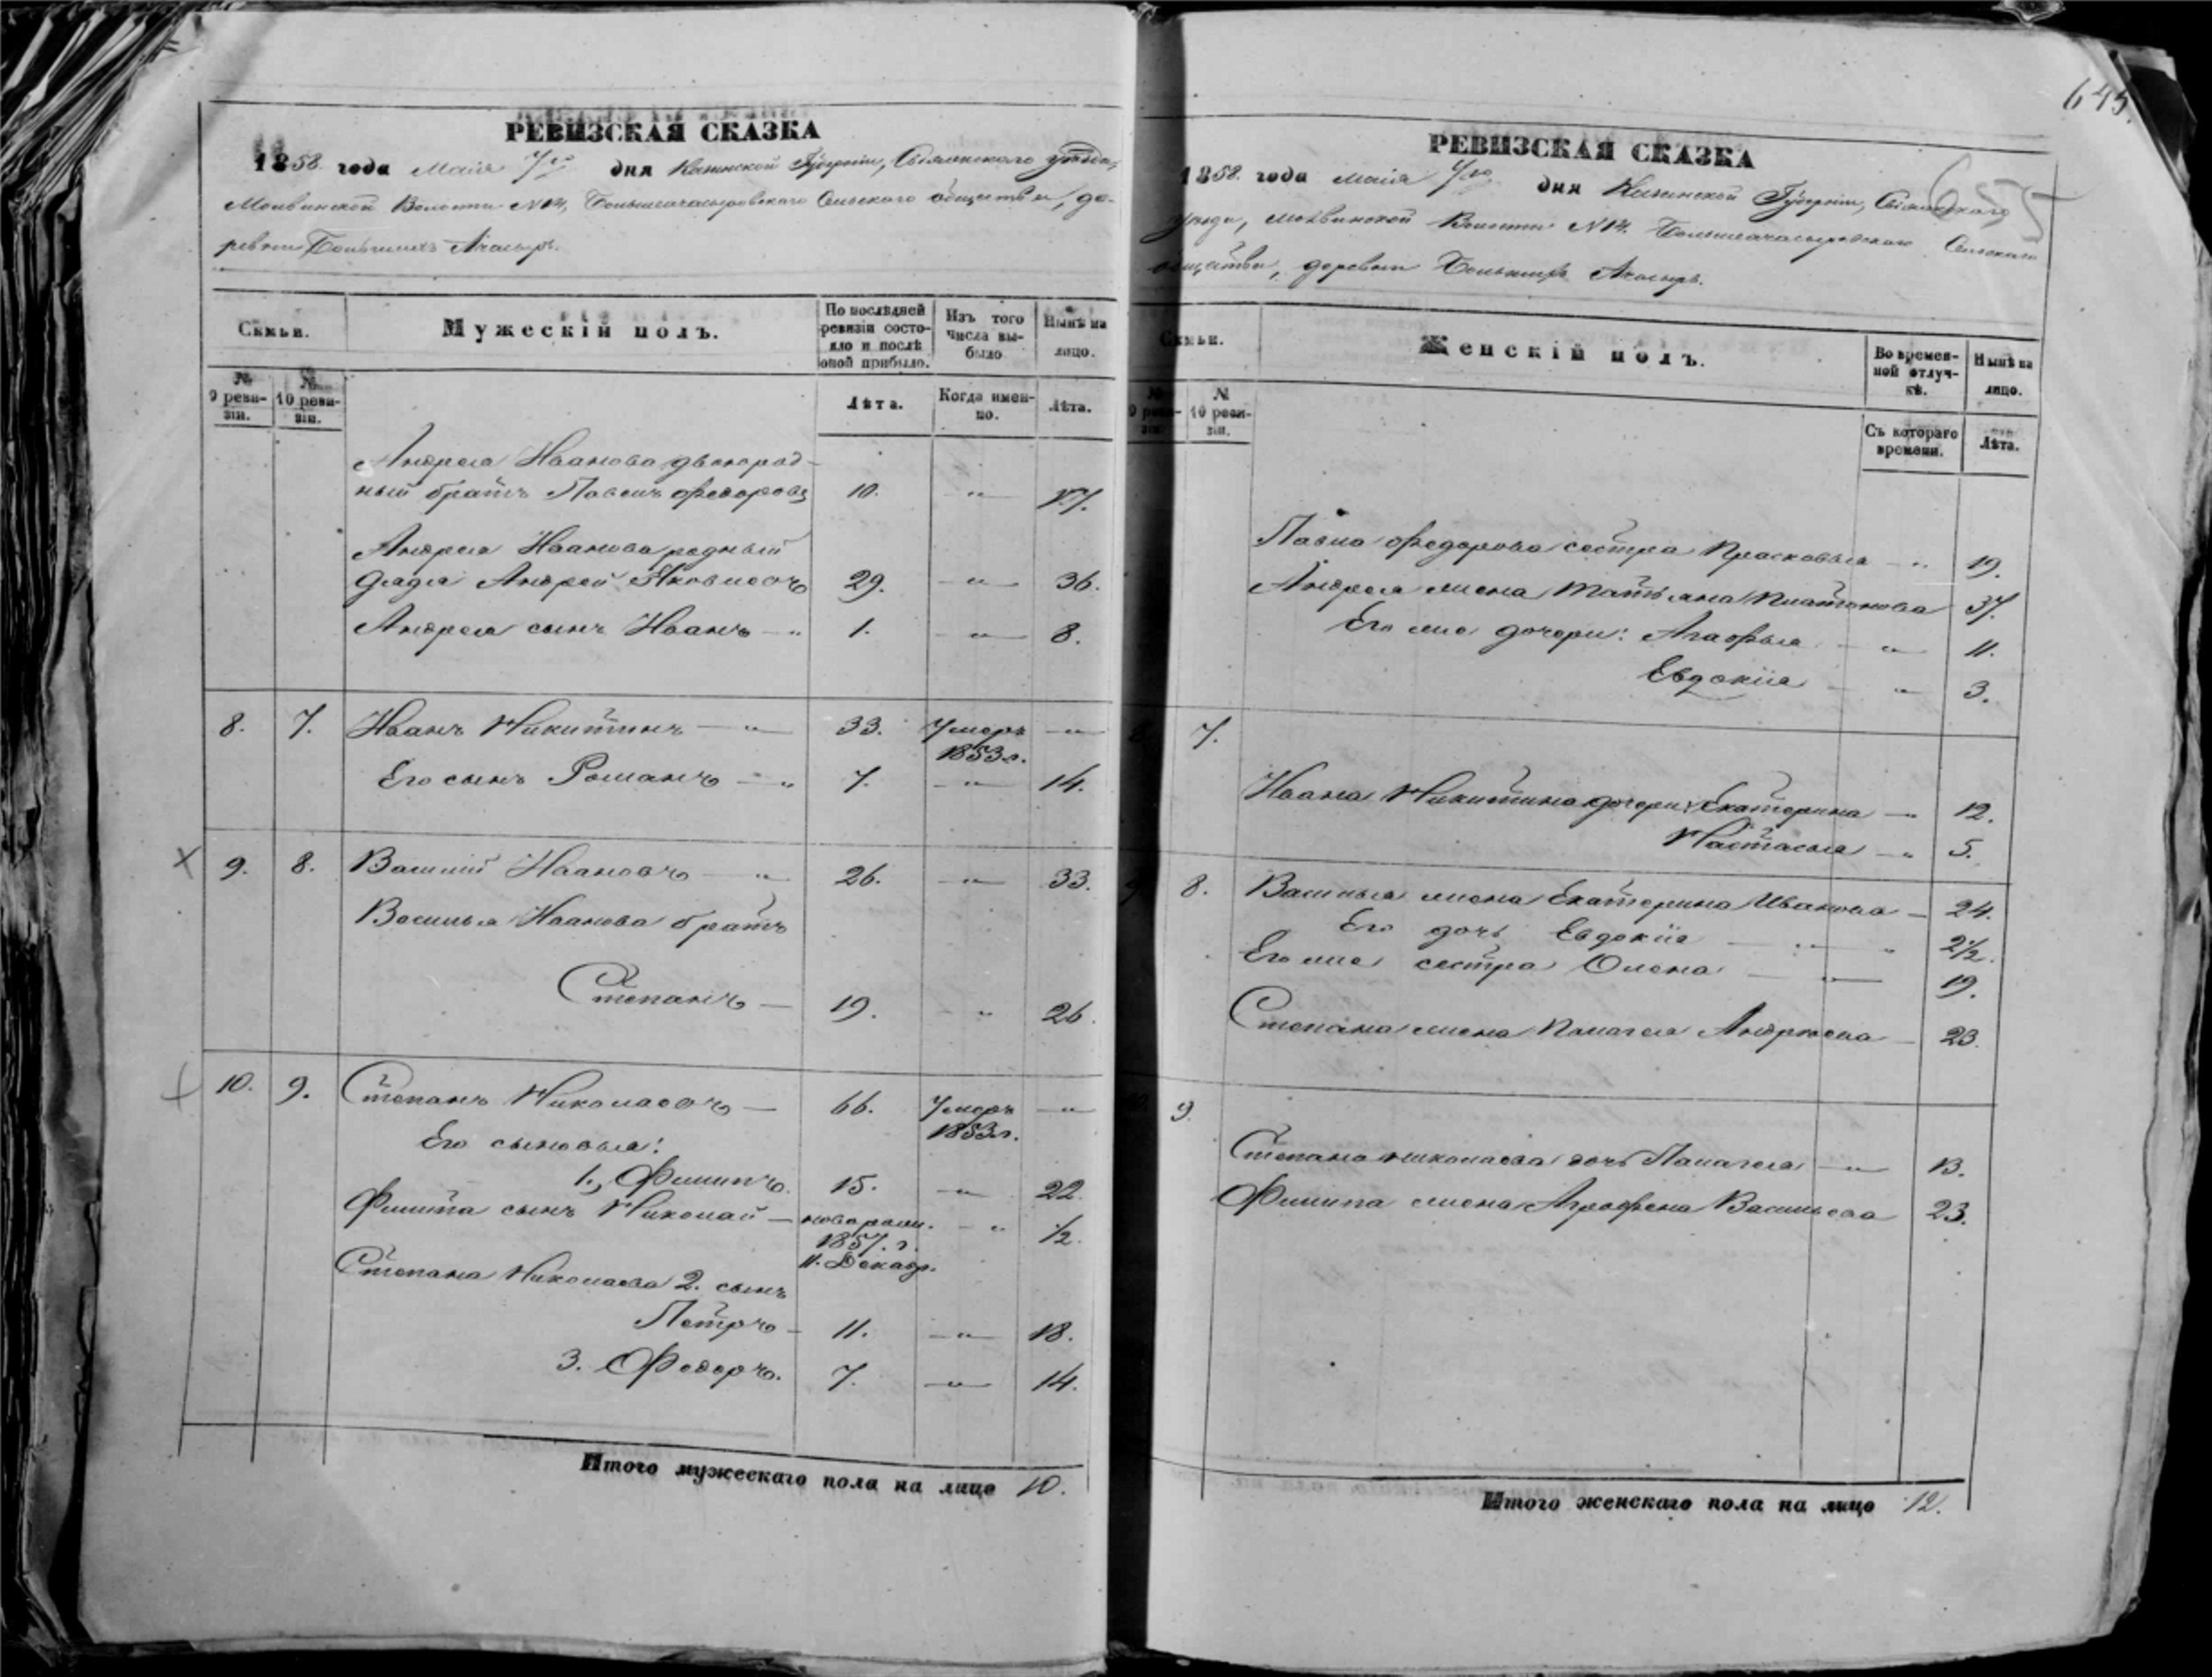 645.
655
РЕВИЗСКАЯ СКАЗКА
1858 года Маія 7го дня Казанской Губерніи, Свіяжскаго уѣзда,
Молвинской Волости №14, Большеачасырскаго Сельскаго общества, де-
ревни Большихъ Ачасыръ.
Семьи.
Мужескій полъ.
По последней ревизіи состо-
яло и послѣ оной прибыло.
Изъ того числа вы-
было
Нынѣ на лицо.
№ 9 реви-
зіи.
№ 10 реви-
зіи.
Лѣта.
Когда имен-
но.
Лѣта.
Андрея Иванова двоюрод-
ный братъ Павелъ Федоровъ 10. — " — 17.
Андрея Иванова родный
дядя Андрей Яковлевъ 29. — " — 36.
Андрея сынъ Иванъ — " 1. — " — 8.
8. 7. Иванъ Никитинъ — " — 33. Умеръ — " —
1853 г.
Его сынъ Романъ — " 7. — " — 14.
9. 8. Василий Ивановъ — " — 26. — " — 33.
Василья Иванова братъ
Степанъ — 19. — " 26.
10. 9. Степанъ Николаевъ — 66. Умеръ — " —
1853 г.
Его сыновья:
1., Филипъ. 15. — " — 22.
Филипа сынъ Николай — новорож. — " ½.
1857. г.
11. Декабр.
Степана Николаева 2. сынъ
Петръ — 11. — " — 18.
3. Федоръ. 7. — " — 14.
Итого мужескаго пола на лицо 10.
РЕВИЗСКАЯ СКАЗКА
1858. года Маія 7го дня Казанской Губерніи, Свіяжскаго
уѣзда, Молвинской Волости №14. Большеачасырскаго Сельскаго
общества, деревни Большихъ Ачасыръ.
Семьи.
Женскій полъ.
Во времен-
ной отлуч-
кѣ.
Нынѣ на лицо.
№ 9 реви-
зіи.
№ 10 реви-
зіи.
Съ котораго времени.
Лѣта.
Павла Федорова сестра Прасковья — " 19.
Андрея жена Татьяна Платонова 37.
Его же дочери: Агафья — " — 11.
Евдокія — " — 3.
7.
Ивана Никитина дочери: Екатерина — " 12.
Настасья — " 5.
8. Василья жена Екатерина Иванова — 24.
Его дочь Евдокія — " — " 2½.
Его же сестра Олена — " — 19.
Степана жена Палагея Андреева — 23.
9.
Степана Николаева дочь Палагея — " — 13.
Филипа жена Аграфена Васильева 23.
Итого женскаго пола на лицо 12.